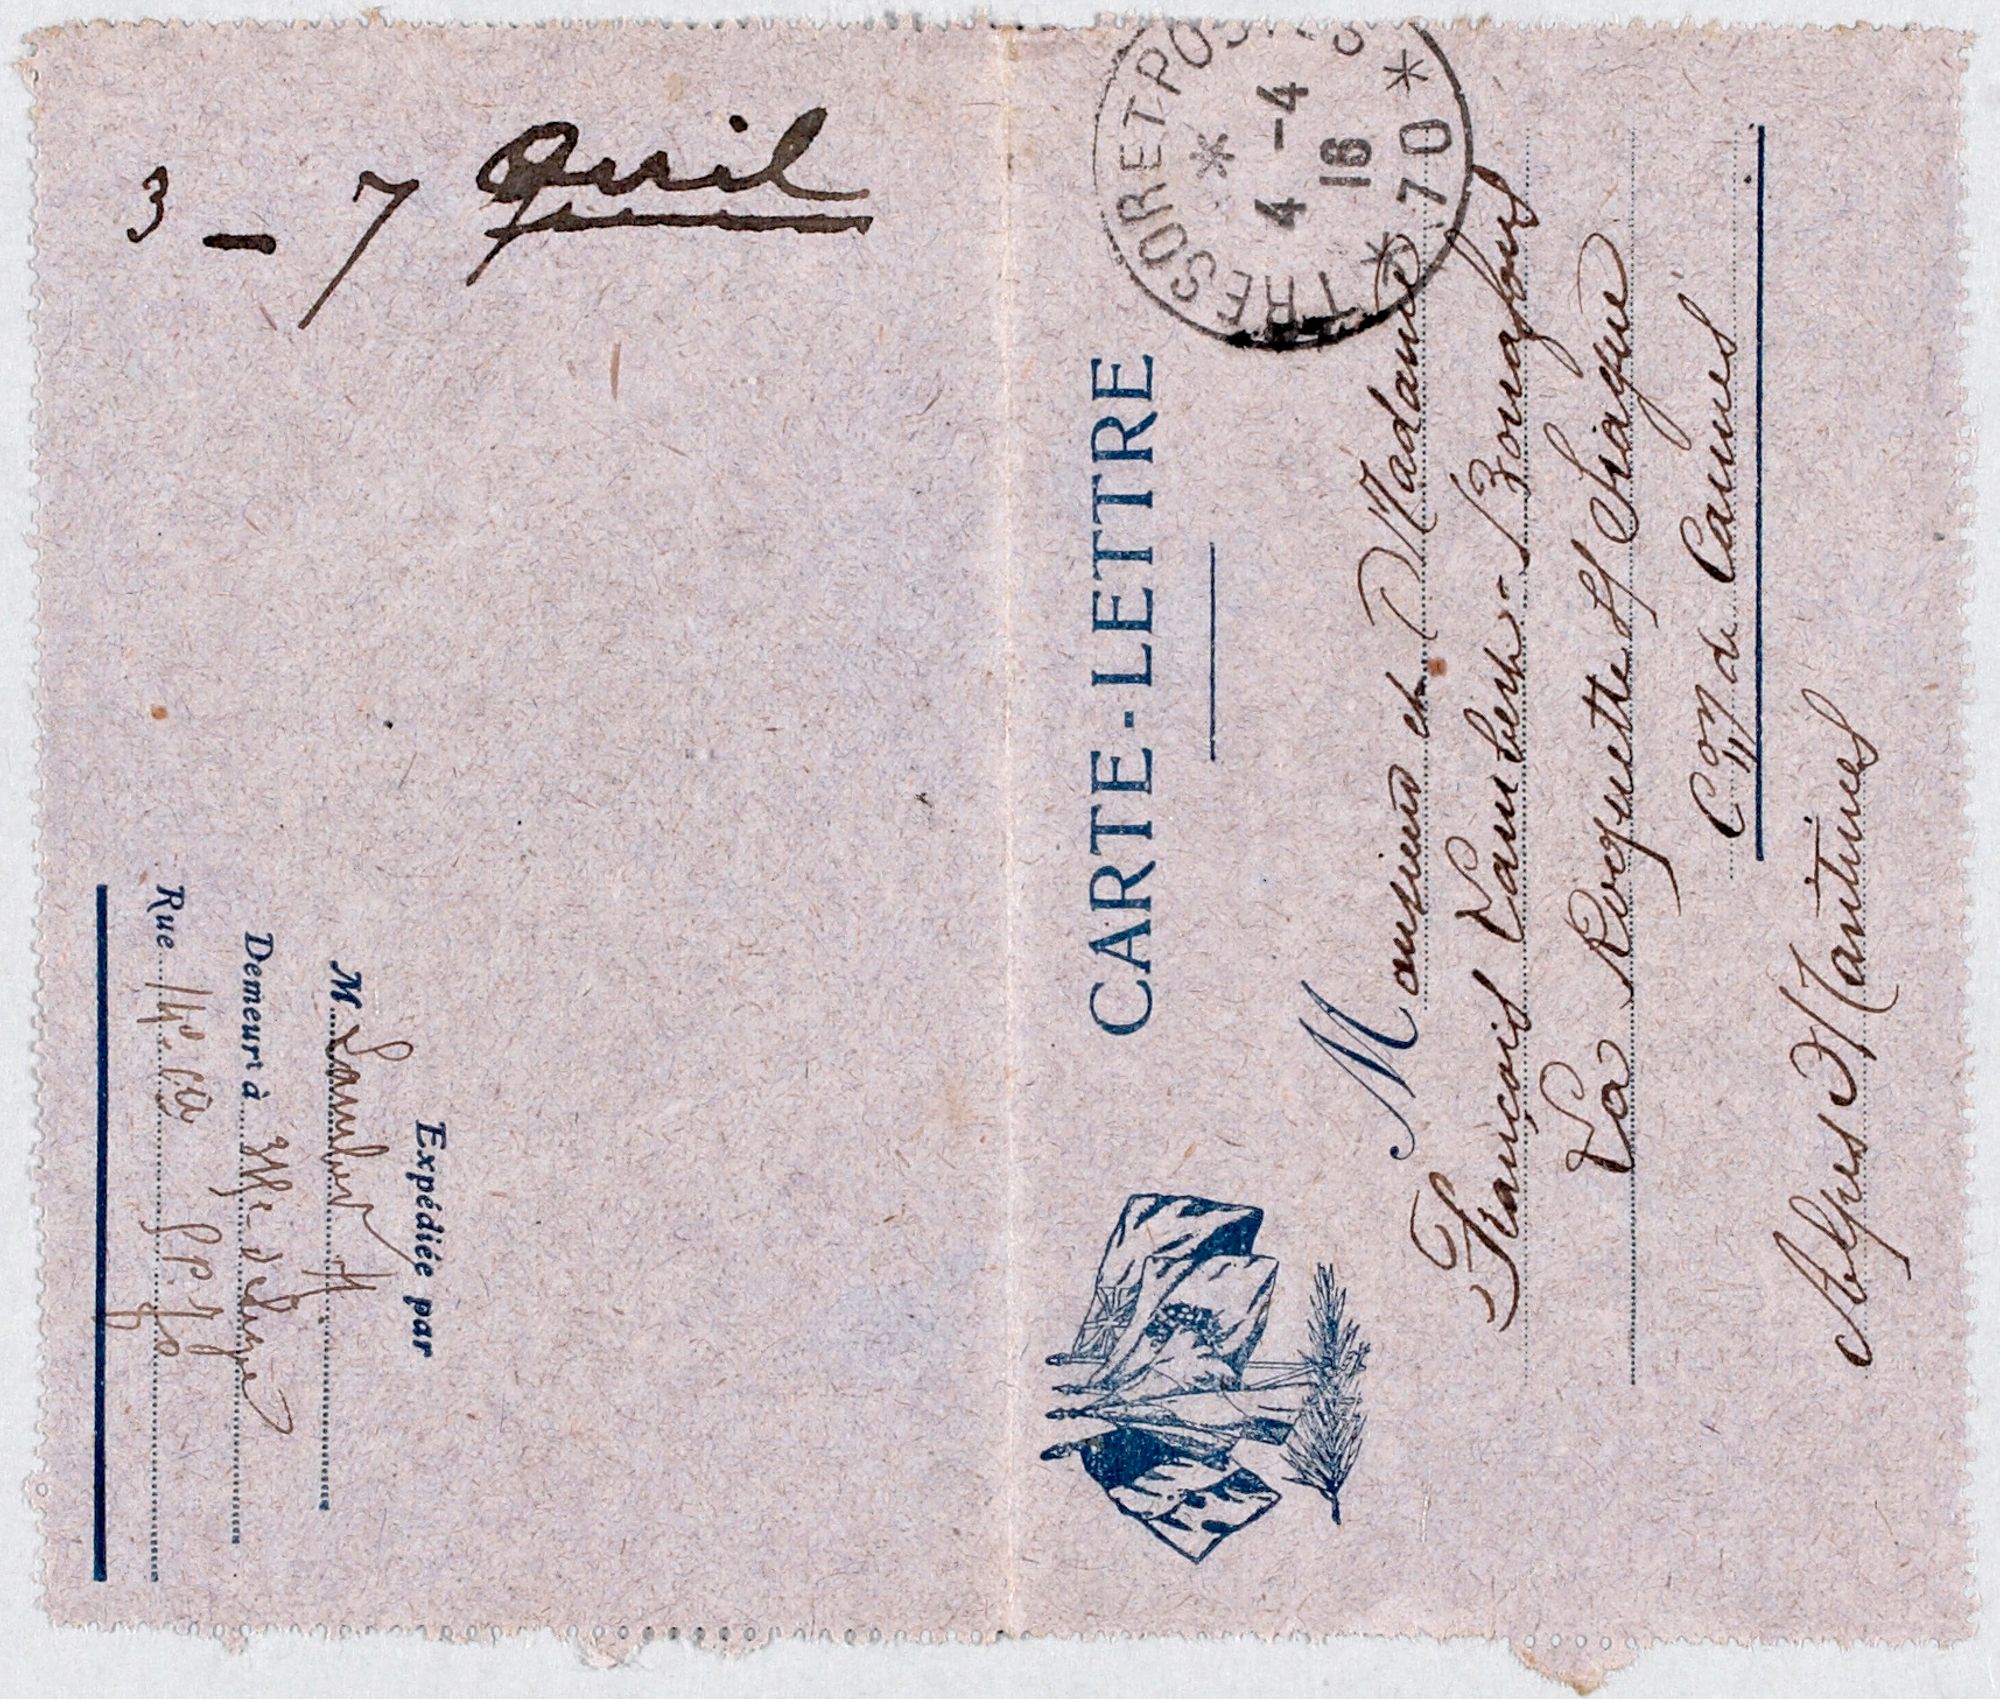 3 - 7 Avril
Expédiée par
M Lambert H
Demeurant à
Rue 14e Cie S.P. 70
TRESOR ET POSTES
4 -4
16
* 70 *
CARTE-LETTRE
Monsieur et Madame
François Lambert-Bonnafous
La Roquette s/ Siagne
Con de Cannes
Alpes Maritimes